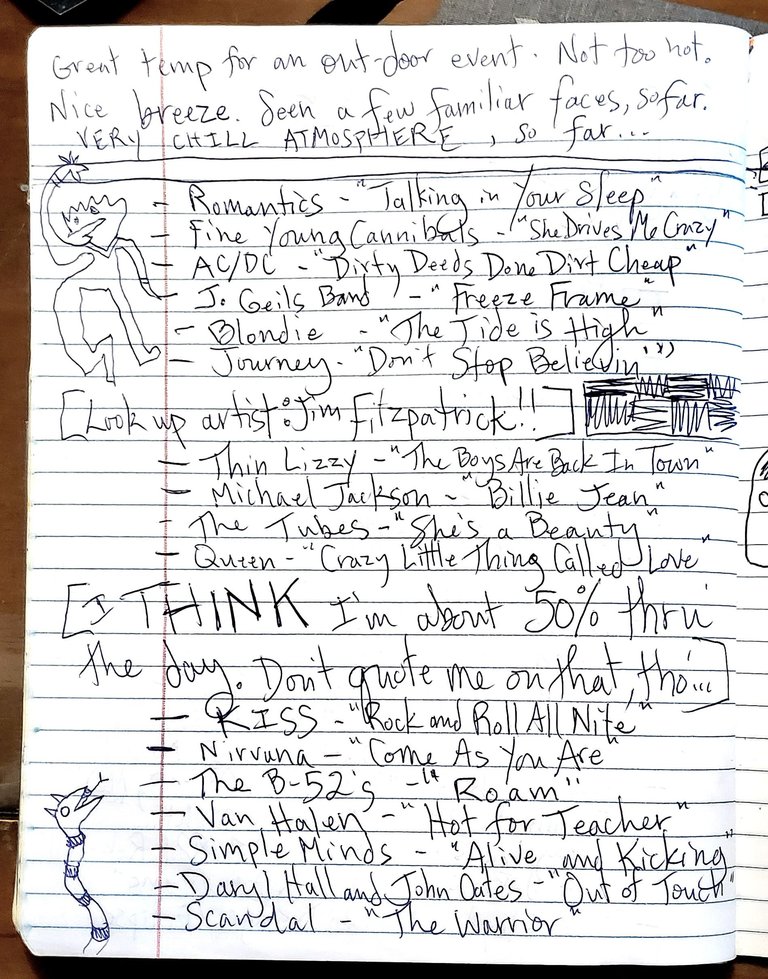 Great temp for an out-door event. Not too hot.
Nice breeze. Seen a few familiar faces, so far.
VERY CHILL ATMOSPHERE, so far...
- Romantics - "Talking in Your Sleep"
- Fine Young Cannibals - "She Drives Me Crazy"
- AC/DC - "Dirty Deeds Done Dirt Cheap"
- J. Geils Band - "Freeze Frame"
- Blondie - "The Tide is High"
- Journey - "Don't Stop Believin'")
[Look up artist: Jim Fitzpatrick!!]
- Thin Lizzy - "The Boys Are Back In Town"
- Michael Jackson - "Billie Jean"
- The Tubes - "She's a Beauty"
- Queen - "Crazy Little Thing Called Love"
[I THINK I'm about 50% thru
the day. Don't quote me on that, tho'...]
- KISS - "Rock and Roll All Nite"
- Nirvana - "Come As You Are"
- The B-52's - "Roam"
- Van Halen - "Hot for Teacher"
- Simple Minds - "Alive and Kicking"
- Daryl Hall and John Oates - "Out of Touch"
- Scandal - "The Warrior"